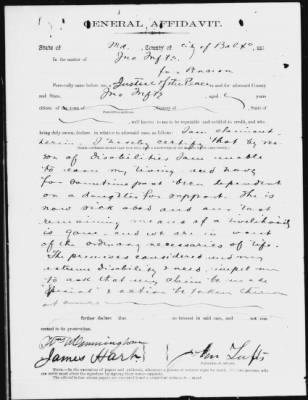 GENERAL AFFIDAVIT.
State of Md. County of City of Balto, ss:
In the matter of
for Pension
Personally came before me, a Justice of the Peace in and for aforesaid County
and State, aged years,
citizen of the town of County of
State of
well known to me to be reputable and entitled to credit, and who,
being duly sworn, declare in relation to aforesaid case, as follows: I am claimant
herein I hereby certify that by rea-
son of disabilities I am unable
to earn my living and have
for sometime past been dependent
on a daughter for support. She is
now sick abed and our last
remaining means of a livelihood
is gone and we are in want
of the ordinary necessaries of life.
The premises considered and my
extreme disability & need, impel me
to ask that my claim be made
"special" & action be taken thereon
at once
further declare that no interest in said case, and not con-
cerned in its prosecution.
Wm Cunningham
James Hart